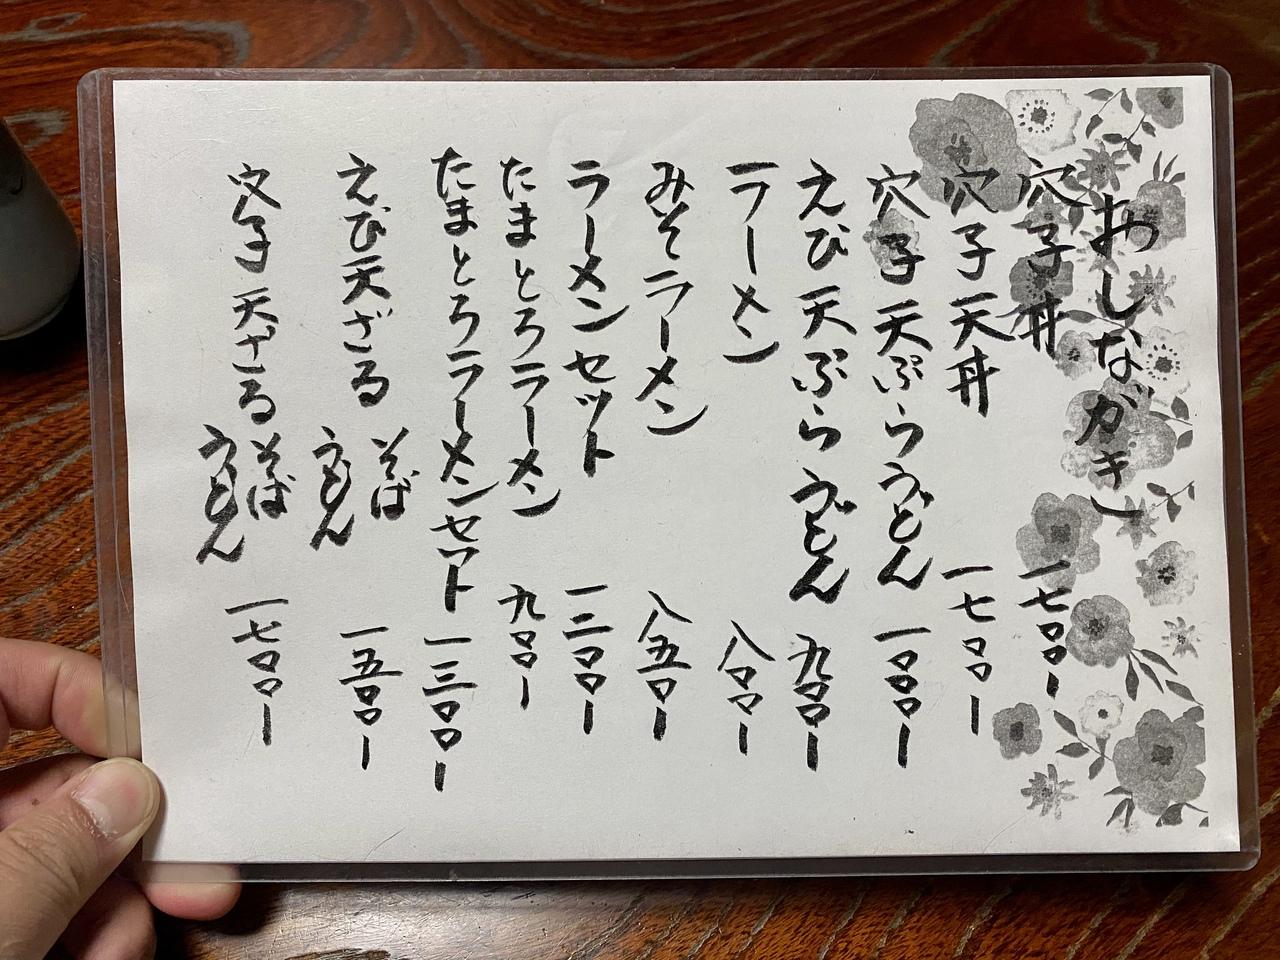 おしながき
穴子丼 一七〇〇ー
穴子天丼 一七〇〇ー
穴子天ぷらうどん 一〇〇〇ー
えび天ぷらうどん 九〇〇ー
ラーメン 八〇〇ー
みそラーメン 八五〇ー
ラーメンセット 一三〇〇ー
たまとろラーメン 九〇〇ー
たまとろラーメンセット 一三〇〇ー
えび天ざる そば うどん 一五〇〇ー
穴子天ざる そば うどん 一七〇〇ー